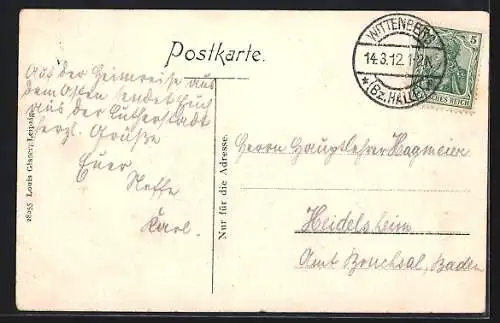 Postkarte.
WITTENBERG
14.3.12.1-2N
*(Bz.HALLE)
5
DEUTSCHES REICH
Auf der Heimreise aus
dem Osten sendet Euch
aus der Lutherstadt
herzl. Grüße
Euer
Neffe
Karl.
28255 Louis Glaser, Leipzig
Nur für die Adresse.
Herrn Hauptlehrer Hagmeier
Heidelsheim
Amt Bruchsal, Baden